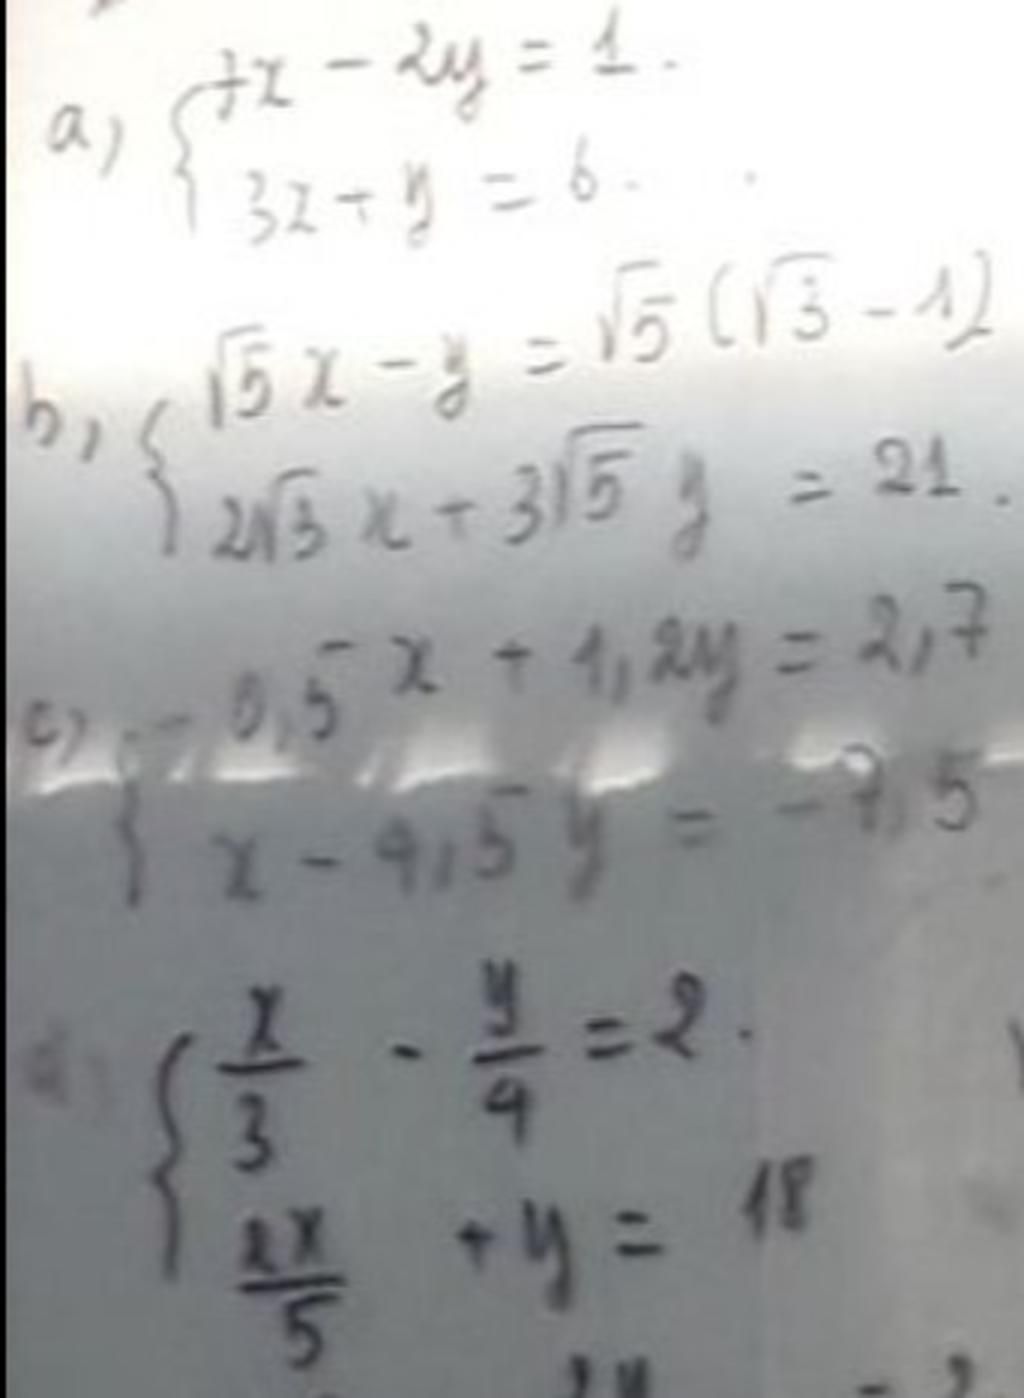 a, { 7x - 2y = 1.
3x + y = 6.
b, { √5 x - y = √5 (√3 - 1)
2√3 x + 3√5 y = 21.
c, { - 0,5 x + 1,2y = 2,7
x - 4,5 y = - 7,5
{ x/3 - y/4 = 2.
2x/5 + y = 18